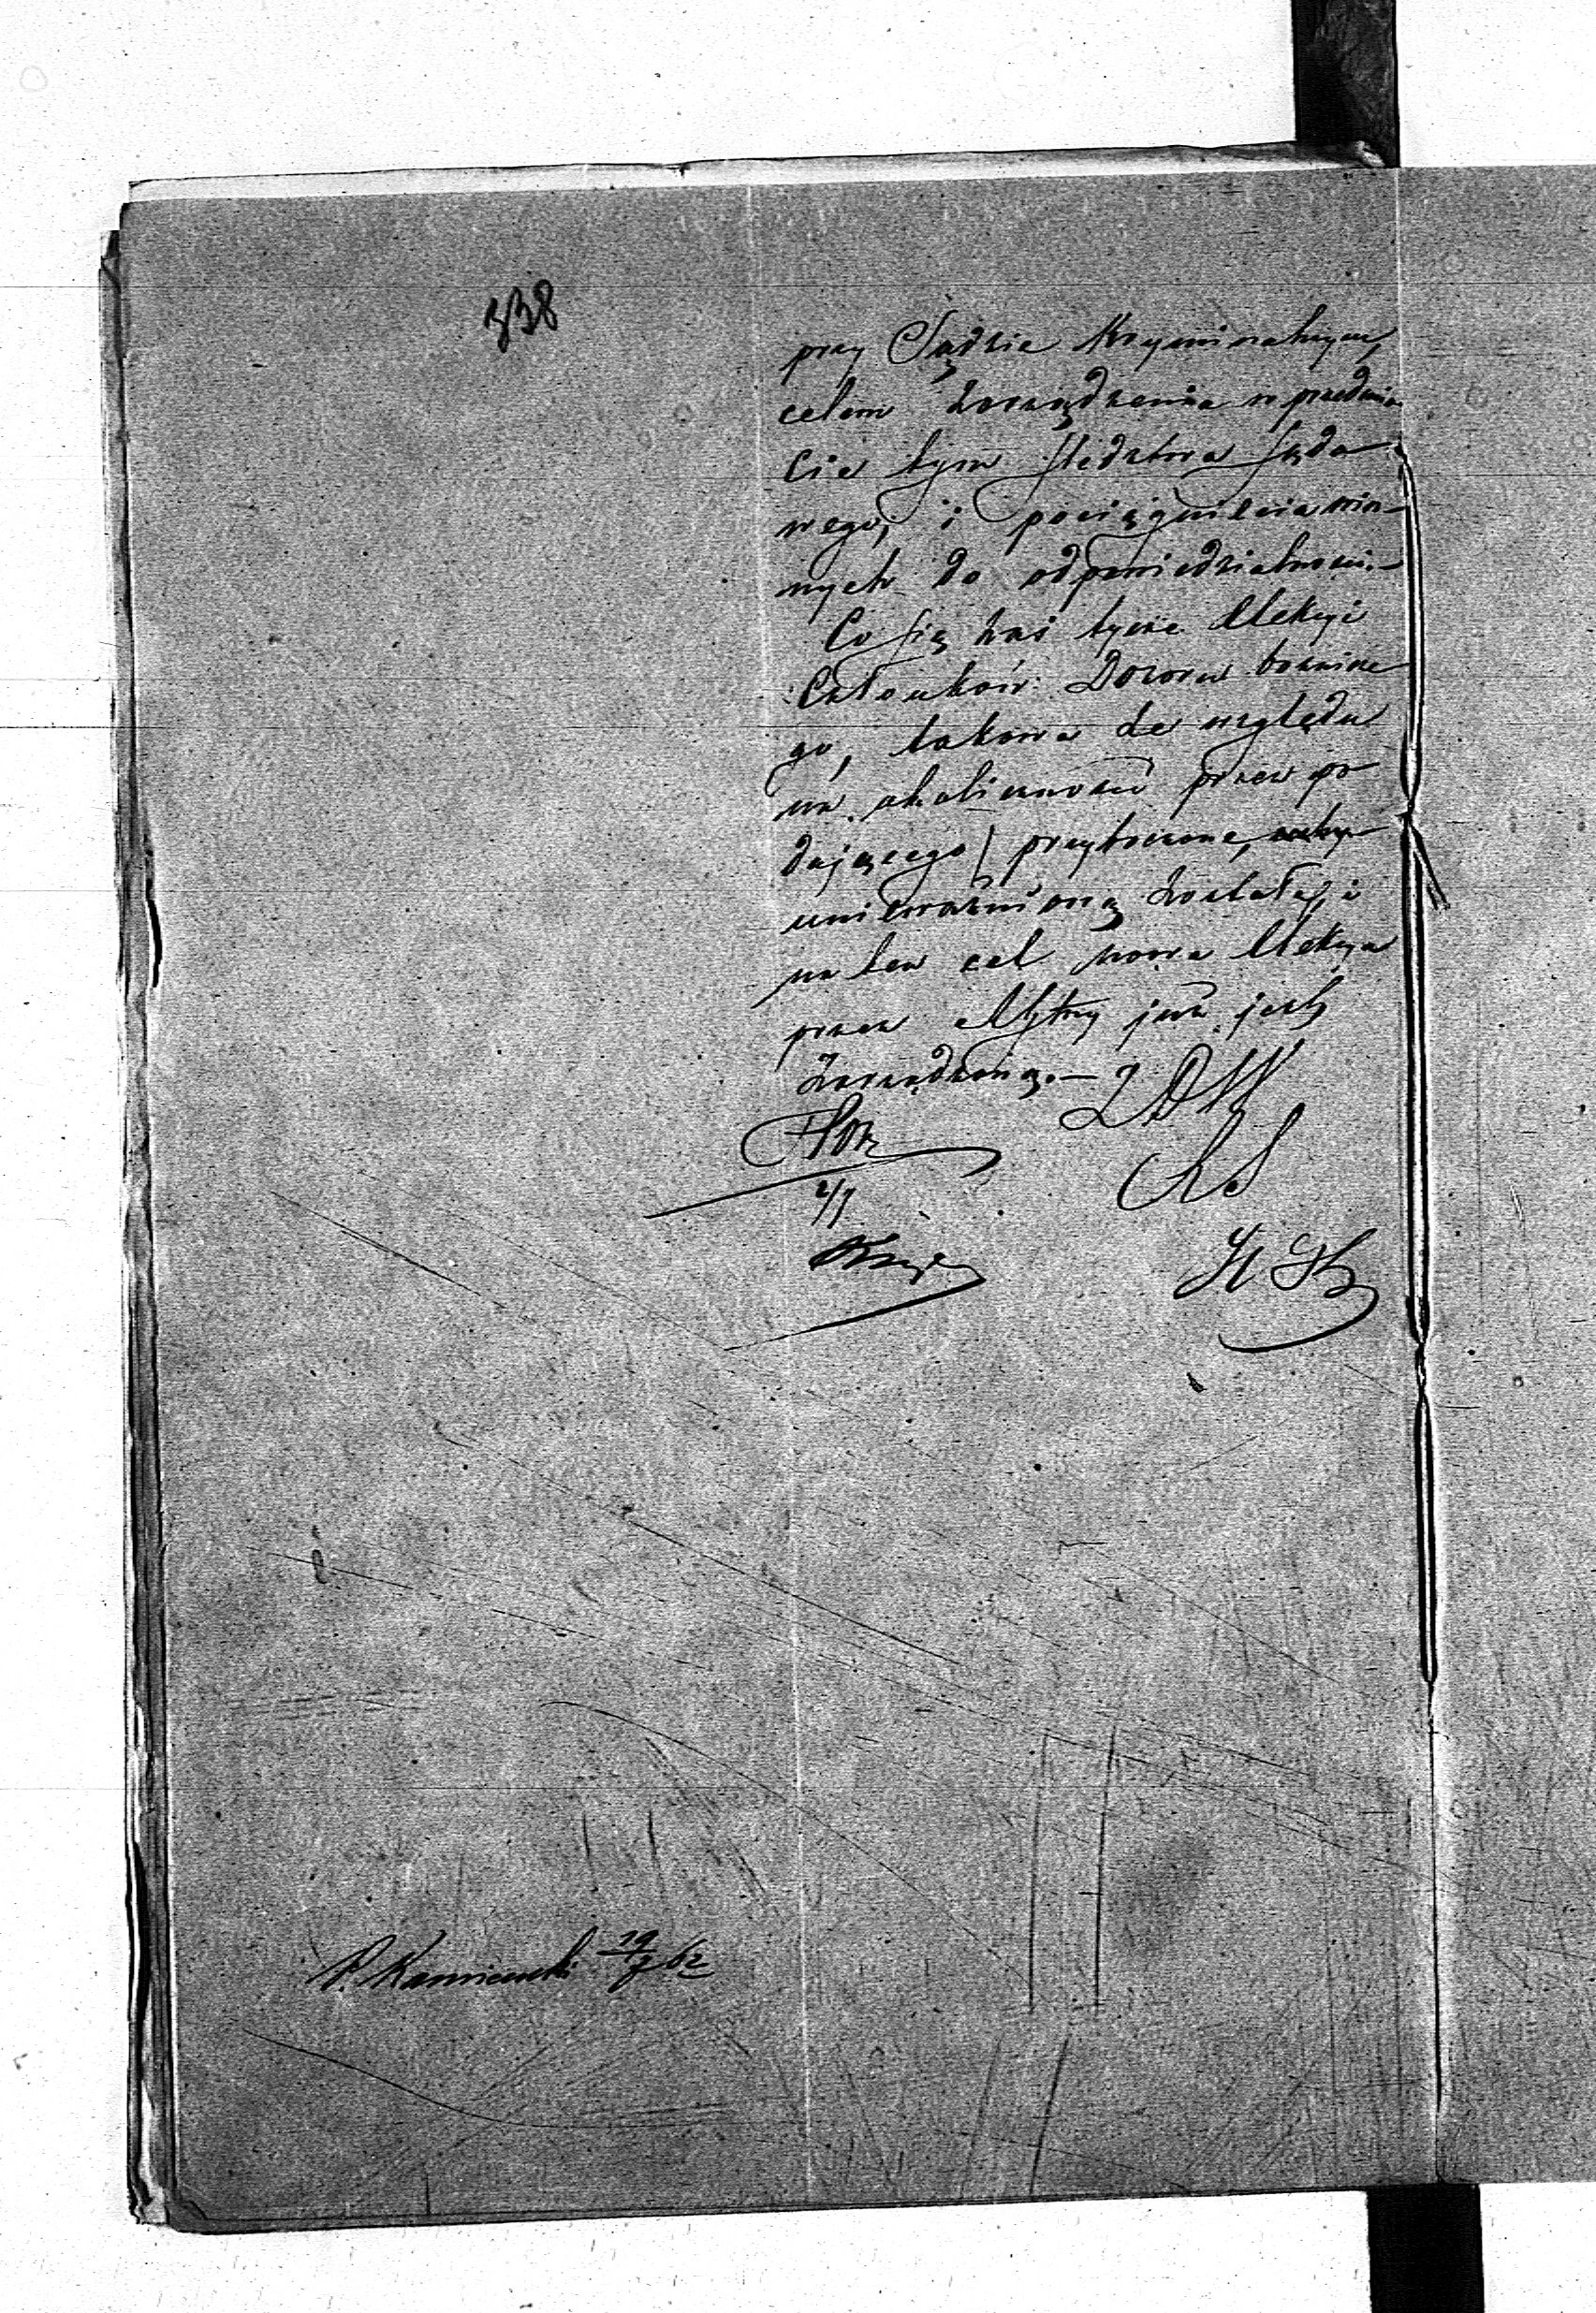 338
przy Sądzie Kryminalnym,
celem zarządzenia w przedmio
cie tym śledztwa sądo
wego, i pociągnięcia win-
nych do odpowiedzialności.—
Co się zaś tycze Elekcyi
Członków Dozoru boznicze
go, takowa ze względu
na okoliczności przez po
dającego przytoczone,
unieważnioną została, i
na ten cel nowa Elekcya
przez już jest
zarządzoną.—
ZDW
2/7
RS
P. Kamiński 19/7 62